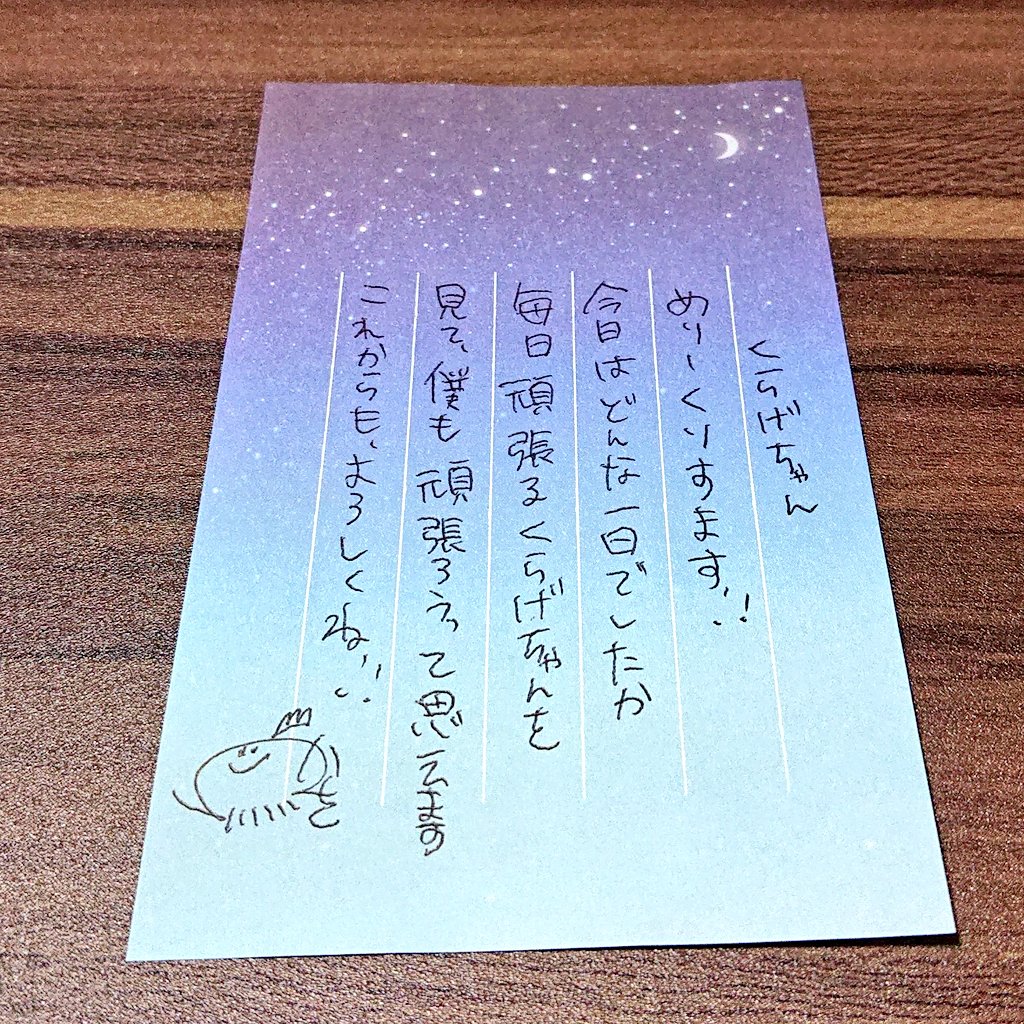 くらげちゃん
めりーくりすます!!
今日はどんな一日でしたか
毎日頑張るくらげちゃんを
見て、僕も頑張ろうって思います
これからも、よろしくね!!